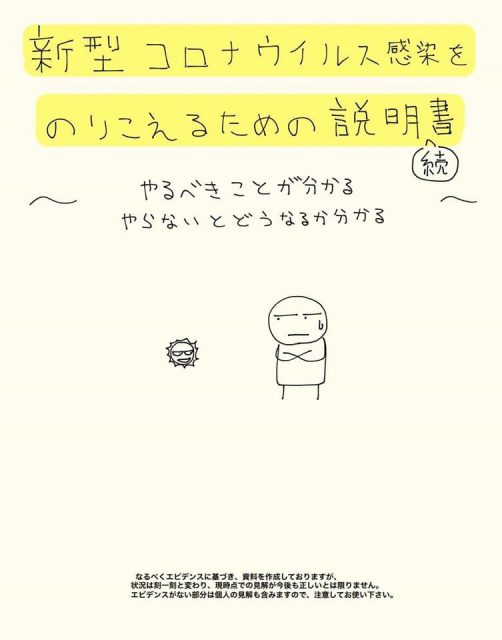 新型コロナウイルス感染を
のりこえるための説明書
続
〜 やるべきことが分かる 〜
やらないとどうなるか分かる
なるべくエビデンスに基づき、資料を作成しておりますが、
状況は刻一刻と変わり、現時点での見解が今後も正しいとは限りません。
エビデンスがない部分は個人の見解も含みますので、注意してお使い下さい。